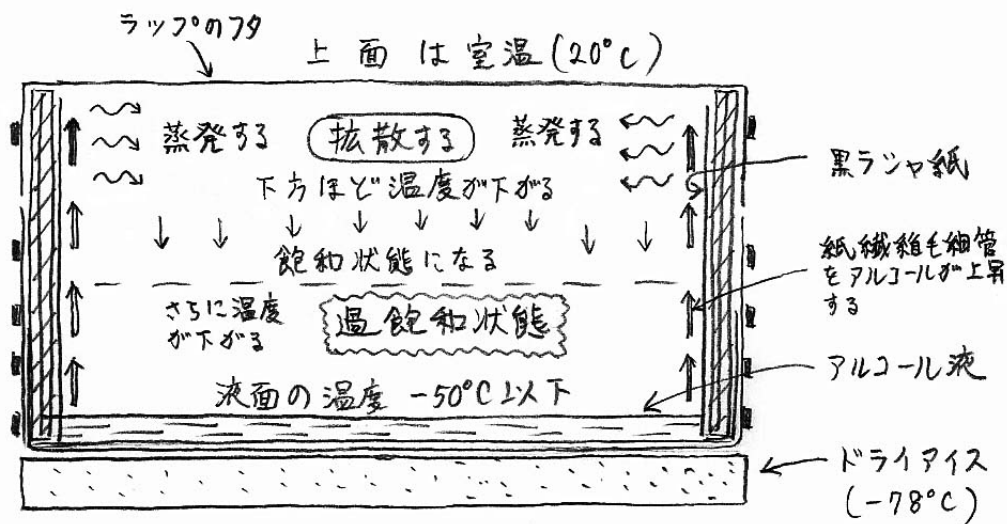 ラップのフタ
上面は室温(20°C)
蒸発する
拡散する
蒸発する
下方ほど温度が下がる
飽和状態になる
さらに温度
が下がる
過飽和状態
液面の温度 -50°C以下
黒ラシャ紙
紙繊維毛細管
をアルコールが上昇
する
アルコール液
ドライアイス
(-78°C)